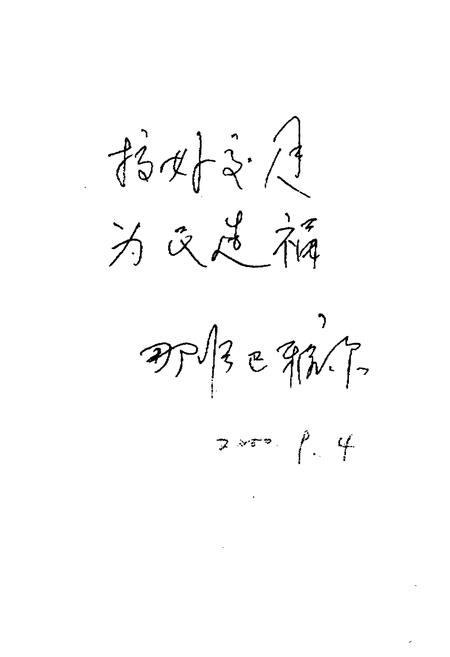 搞好交通
为民造福
那顺巴雅尔
2000. 9. 4